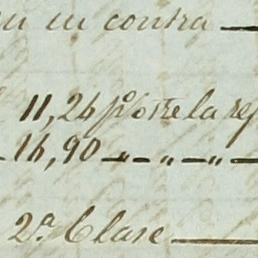 en contra
11,24 p% sre la ref
14,90 " " "
2ª Clase